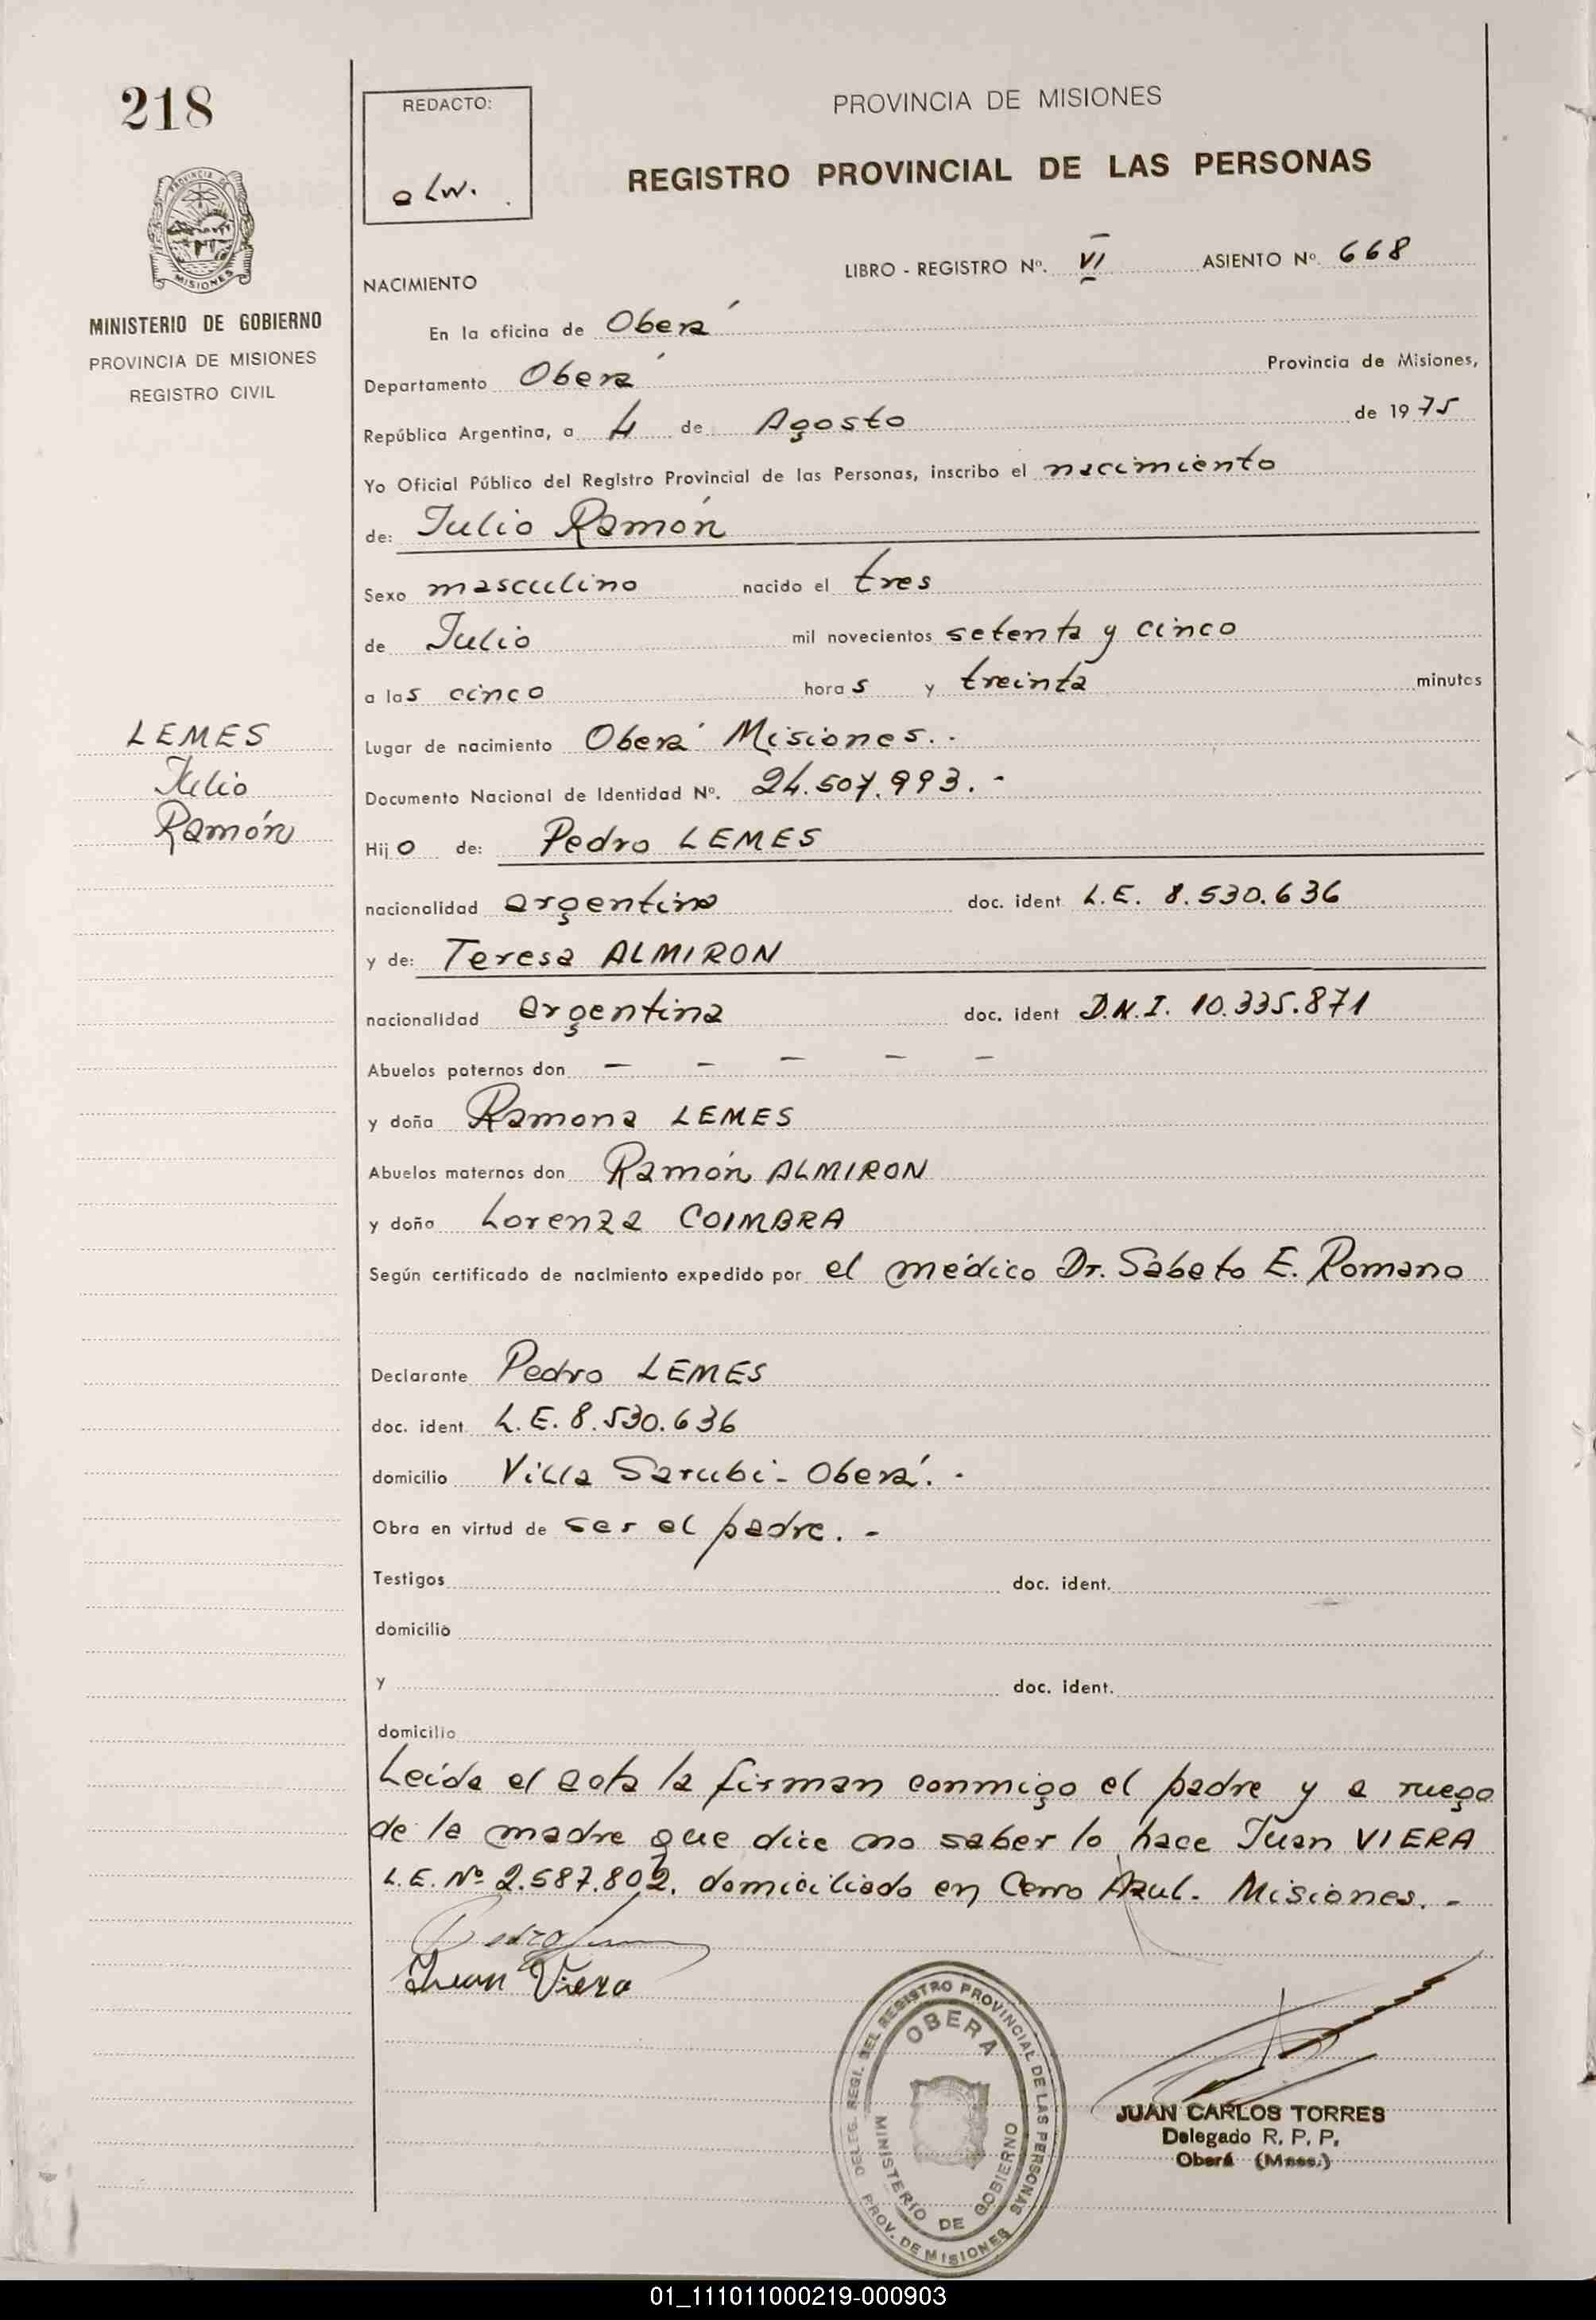 218
REDACTO:
PROVINCIA DE MISIONES
REGISTRO PROVINCIAL DE LAS PERSONAS
PROVINCIA DE
MISIONES
MINISTERIO DE GOBIERNO
PROVINCIA DE MISIONES
REGISTRO CIVIL
NACIMIENTO
LIBRO - REGISTRO Nº. VI ASIENTO Nº. 668
En la oficina de Oberá
Departamento Oberá Provincia de Misiones,
República Argentina, a 4 de Agosto de 1975
Yo Oficial Público del Registro Provincial de las Personas, inscribo el nacimiento
de: Julio Ramón
Sexo masculino nacido el tres
de Julio mil novecientos setenta y cinco
a las cinco horas y treinta minutos
LEMES
Julio
Ramón
Lugar de nacimiento Oberá Misiones. -
Documento Nacional de Identidad Nº. 24.507.993. -
Hijo de: Pedro LEMES
nacionalidad argentino doc. ident L.E. 8.530.636
y de: Teresa ALMIRON
nacionalidad argentina doc. ident D.N.I. 10.335.871
Abuelos paternos don - - - - -
y doña Ramona LEMES
Abuelos maternos don Ramón ALMIRON
y doña Lorenza COIMBRA
Según certificado de nacimiento expedido por el médico Dr. Sabato E. Romano
Declarante Pedro LEMES
doc. ident. L.E. 8.530.636
domicilio Villa Sarubi - Oberá. -
Obra en virtud de ser el padre. -
Testigos doc. ident.
domicilio
y doc. ident.
domicilio
Leída el acta la firman conmigo el padre y a ruego
de la madre que dice no saber lo hace Juan VIERA
L.E. Nº 2.587.802. domiciliado en Cerro Azul. Misiones. -
Juan Viera
DELEG. REGI. DEL REGISTRO PROVINCIAL DE LAS PERSONAS
OBERA
MINISTERIO DE GOBIERNO
PROV. DE MISIONES
JUAN CARLOS TORRES
Delegado R. P. P.
Oberá (Mnes.)
01_111011000219-000903